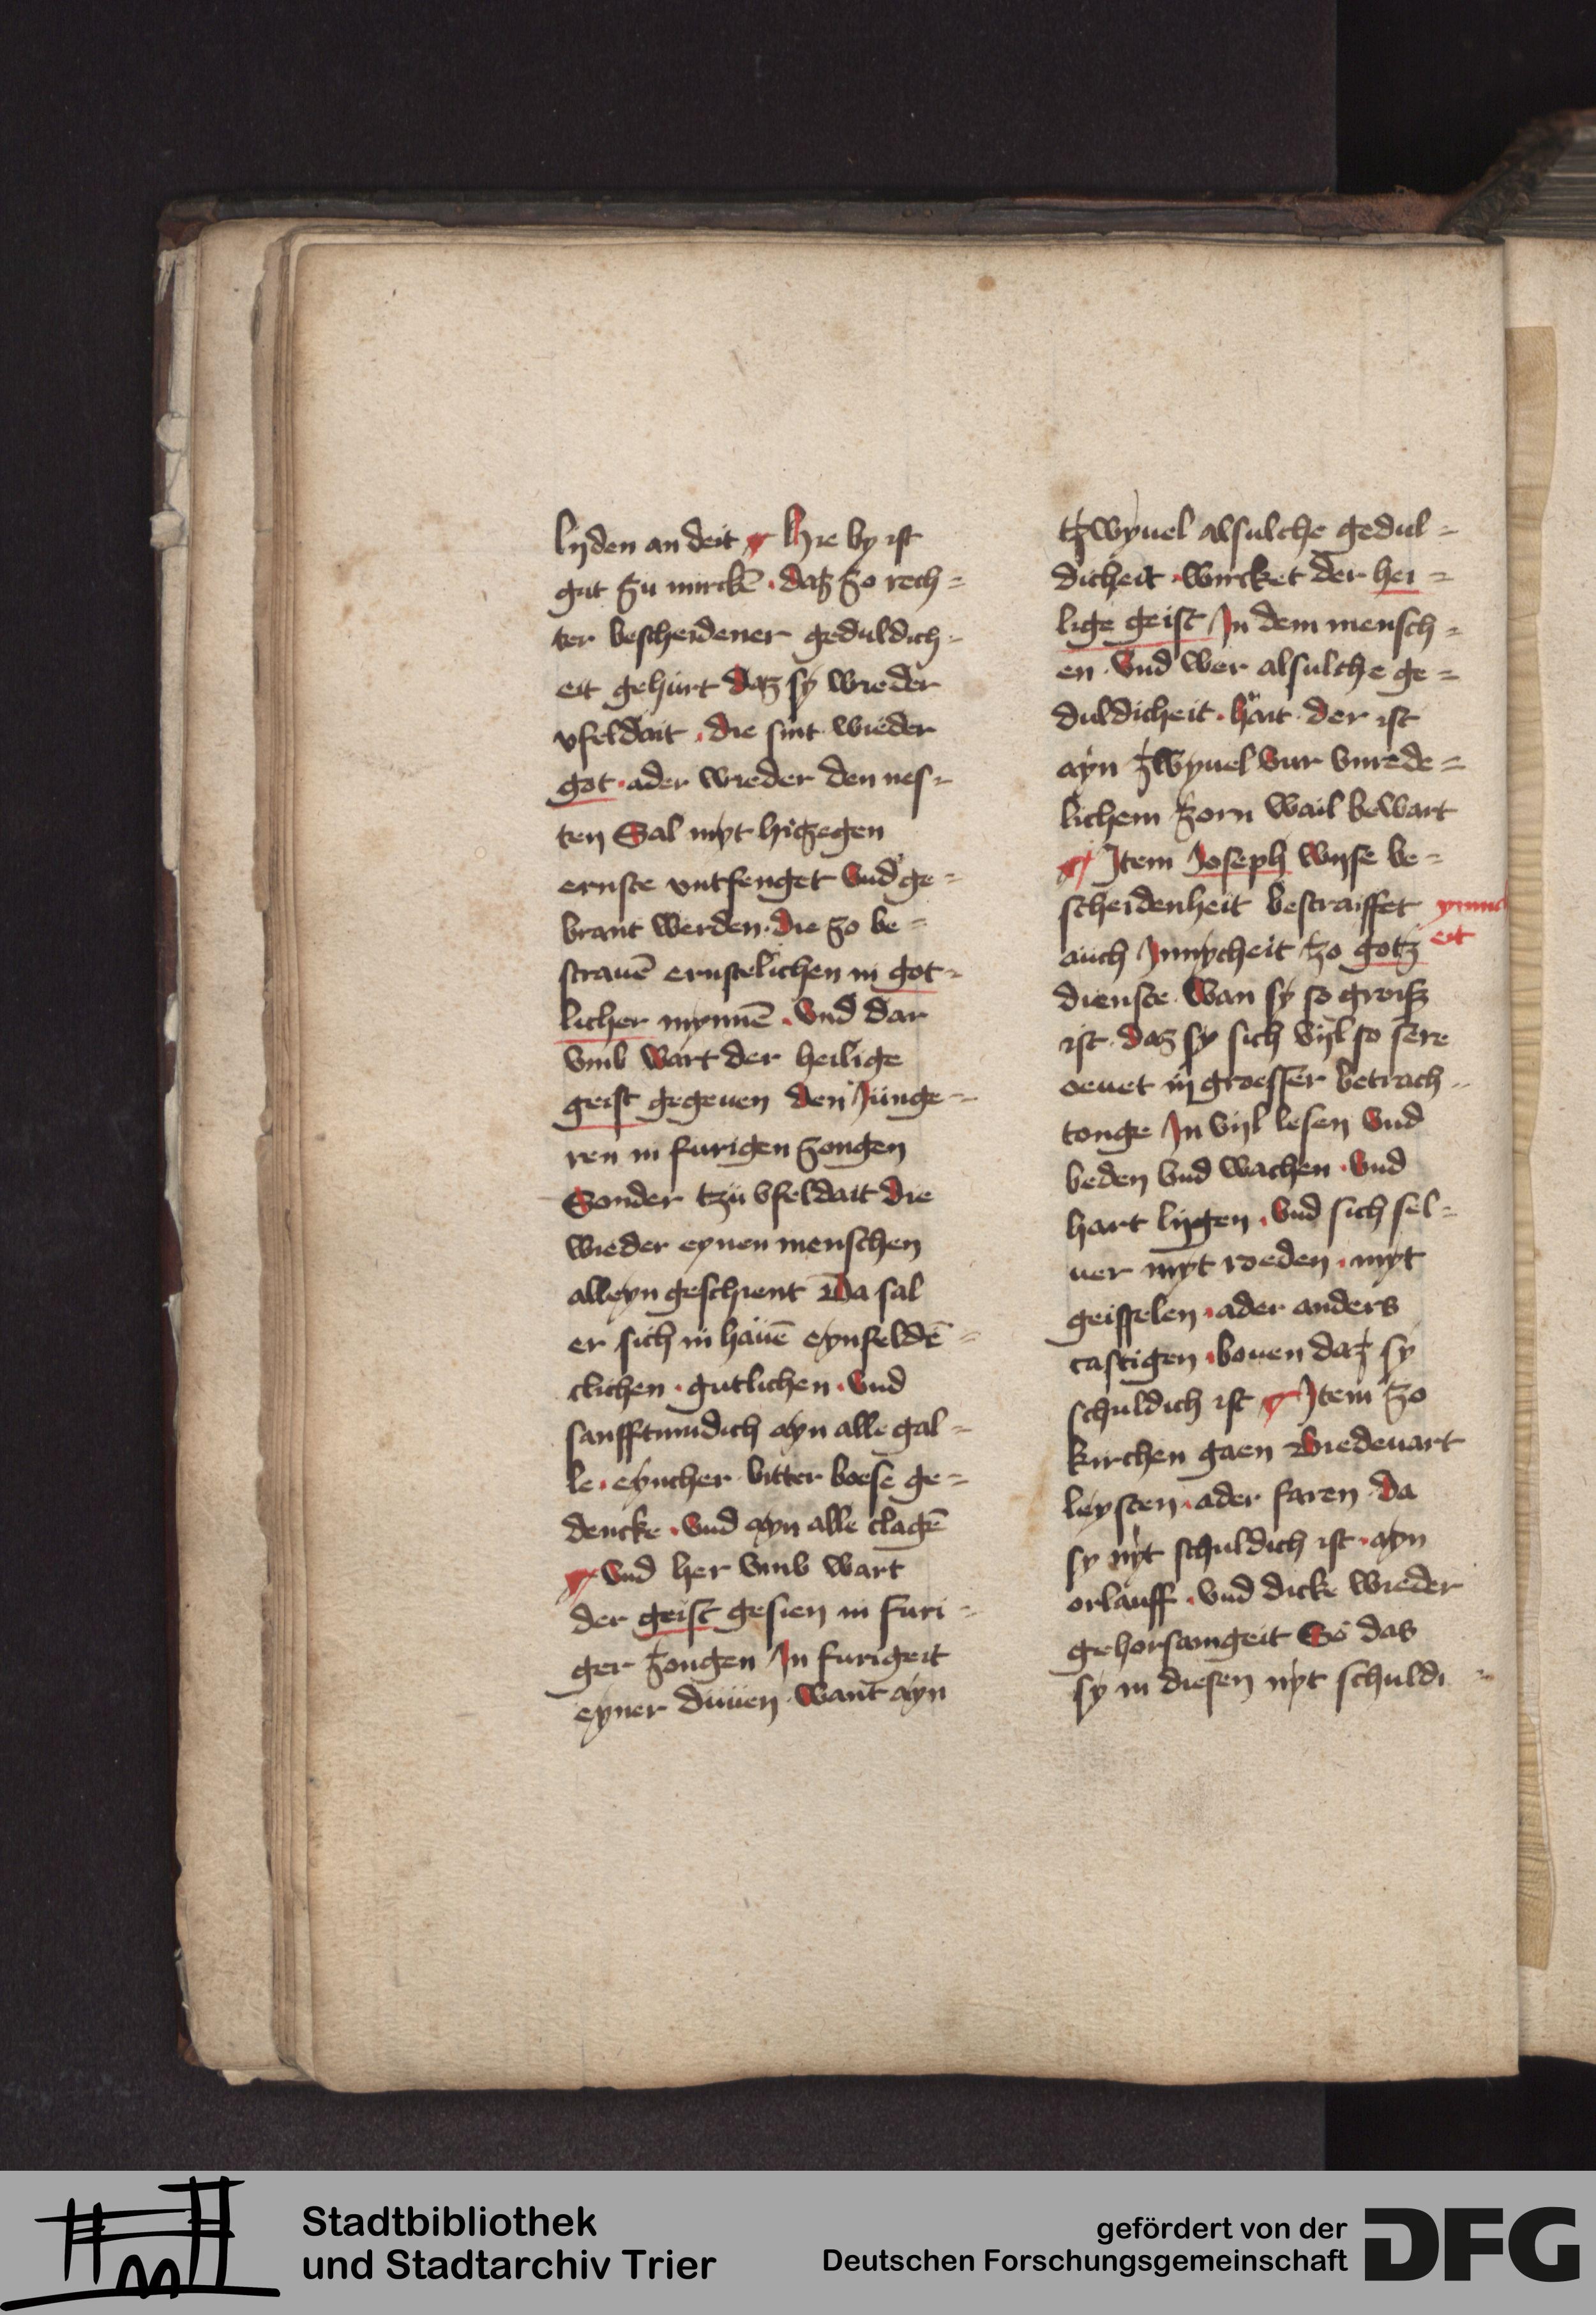 lyden an deit Hie by ist
gut zu mirckē · daz zo rech=
ter bescheidener geduldich=
eit gehurt daz sy wieder
vfeldait · die sint wieder
got · ader wieder den nes=
ten Sal myt hitzegen
ernste vntfenget vnd ge=
brant werden · die zo be=
stravē ernstelichen in got=
licher mynnē · vnd dar
vmb wart der heilige
geist gegeuen den Junge=
ren in furigen zongen
Sonder tzu vfeldait die
wieder eynen menschen
alleyn geschient Da sal
er sich in havē eynfeldē=
clichen · gutlichen · vnd
sanfftmudich ayn alle gal=
le · eyncher bitter boese ge=
dencke · vnd ayn alle clagē
vnd her vmb wart
der geist gesien in furi=
ger zongen Jn furigeit
eyner duuen · want ayn
tzwyuel alsulche gedul=
dicheit · wircket der hei=
lige geist Jn dem mensch=
en · vnd wer alsulche ge=
duldicheit · hait · der ist
ayn zwyuel vur vnrede=
lichem zorn wail bewart
Jtem Joseph wyse be=
scheidenheit bestraiffet
auch Jnnycheit tzo gotz
eit
dienste · Wan sy so groisz
ist · daz sy sich vyl so sere
oeuet in groesser betrach=
tonge Jn vyl lesen vnd
beden vnd wachen · vnd
hart lygen · vnd sich sel=
uer myt roeden · myt
geisselen · ader anders
castigen · bouen daz sy
schuldich ist Jtem zo
kirchen gaen Biedeuart
leysten · ader faren · da
sy nyt schuldich ist · ayn
orlauff · vnd dicke wieder
gehorsamgeit So das
sy in diesen nyt schuldi=
Stadtbibliothek
und Stadtarchiv Trier
gefördert von der
Deutschen Forschungsgemeinschaft
DFG